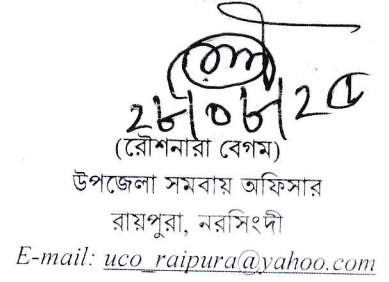 ২৮|০৮|২৫
(রৌশনারা বেগম)
উপজেলা সমবায় অফিসার
রায়পুরা, নরসিংদী
E-mail: uco_raipura@yahoo.com